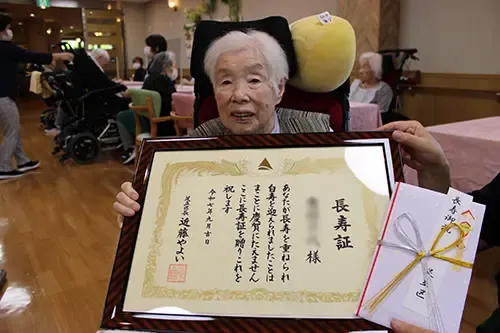 長寿証
様
あなたが長寿を重ねられ
白寿を迎えられましたことは
まことに慶賀にたえません
ここに長寿証を贈りこれを
祝します
令和七年九月吉日
足立区長 近藤やよい
長寿御祝
足立区